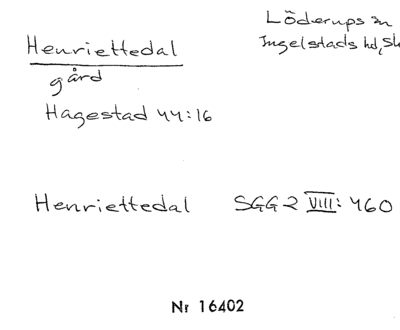 Henriettedal
Löderups sn
Ingelstads hd, Sk
gård
Hagestad 44:16
Henriettedal SGG 2 VIII: 460
Nr 16402